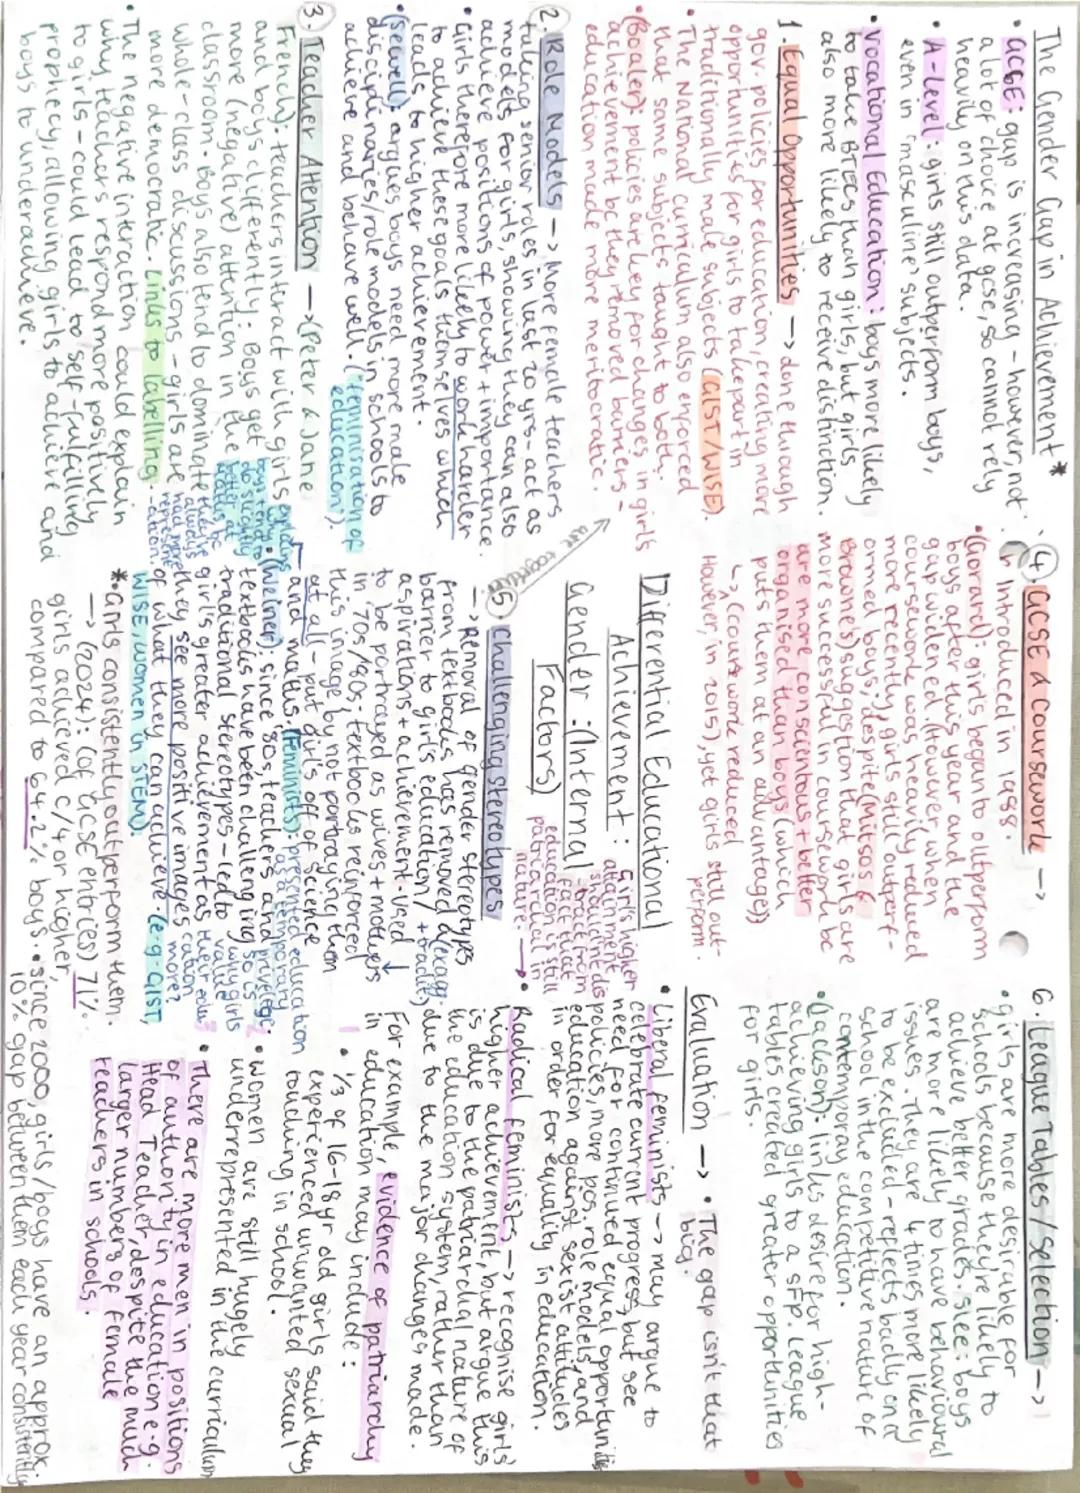 The Gender Gap in Achievement*
• GCSE: gap is increasing - however, not
a lot of choice at gcse, so cannot rely
heavily on this data.
• A-level: girls still outperform boys,
even in 'masculine' subjects.
• Vocational Education: boys more likely
to take BTECs than girls, but girls
also more likely to receive distinction.
1. Equal Opportunities → done through
gov. policies for education, creating more
opportunities for girls to take part in
traditionally male subjects (GIST/WISE).
• The National Curriculum also enforced
that same subjects taught to both.
• (Boaler): policies are key for changes in girls
achievement bc they removed barriers -
education made more meritocratic.
are together
2. Role Models → More female teachers
taking senior roles in last 20 yrs - act as
models for girls, showing they can also
achieve positions of power + importance.
• Girls therefore more likely to work harder
to achieve these goals themselves which
leads to higher achievement.
• (Sewell): argues boys need more male
disciplinaries/role models in schools to
achieve and behave well. ('feminisation of
education').
3. Teacher Attention → (Peter & Jane
French): teachers interact with girls
and boys differently. Boys get
more (negative) attention in the
classroom. Boys also tend to dominate
whole-class discussions - girls are
more democratic. Links to labelling
• The negative interaction could explain
why teachers respond more positively
to girls - could lead to self-fulfilling
prophecy, allowing girls to achieve and
boys to underachieve.
4. GCSE & Coursework →
↳ Introduced in 1988.
• (Gorard): girls began to outperform
boys after this year and the
gap widened. (However, when
coursework was heavily reduced
more recently, girls still outperf-
ormed boys, despite (Mitsos &
Browne's) suggestion that girls are
more successful in coursework bc
are more conscientous + better
organised than boys (which
puts them at an advantage))
↳ (coursework reduced
However, in 2015), yet girls still out-
perform.
Differential Educational
Achievement:
Gender: (Internal
Factors)
Girl's higher
attainment
shouldn't dis
tract from
fact that
education is still
patriarchal in
nature: →
5. Challenging stereotypes
→ Removal of gender stereotypes
from textbooks has removed a
barrier to girl's education/
aspirations + achievement. Used
to be portrayed as wives + mothers
in '70s/'80s - textbooks reinforced
this image by not portraying them
at all - put girls off of science
and maths. (Feminists): presented education
as a temporary
privelege
• (Weiner): since 80s, teachers and
textbooks have been challenging
traditional stereotypes - led to
girl's greater achievement as
they see more positive images
of what they can achieve. (e.g. GIST,
WISE, women in STEM).
so is
why girls
value
their edu
cation
more?
*• Girls consistently outperform them.
→ (2024): (of GCSE entries) 71%
girls achieved C/4 or higher,
compared to 64.2% boys. • since 2000, girls/boys have an approx.
10% gap between them each year consistently
6. League Tables/selection →
• girls are more desirable for
schools because they're likely to
achieve better grades. Slee: boys
are more likely to have behavioural
issues. They are 4 times more likely
to be excluded - reflects badly on a
school in the competitive nature of
contemporary education.
• (Jackson): links desire for high-
achieving girls to a SFP. League
tables created greater opportunities
for girls.
Evaluation → • The gap isn't that
big.
• Liberal feminists → may argue to
celebrate current progress, but see
need for continued equal opportunities
policies, more pos. role models, and
education against sexist attitudes
in order for equality in education.
• Radical feminists → recognise girls'
higher achievement, but argue this
is due to the patriarchal nature of
the education system, rather than
due to the major changes made.
For example, evidence of patriarchy
in education may include:
• 1/3 of 16-18yr old girls said they
experienced unwanted sexual
touching in school.
• Women are still hugely
underrepresented in the curriculum
• There are more men in positions
of authority in education e.g.
Head Teacher, despite the much
larger numbers of female
teachers in schools.